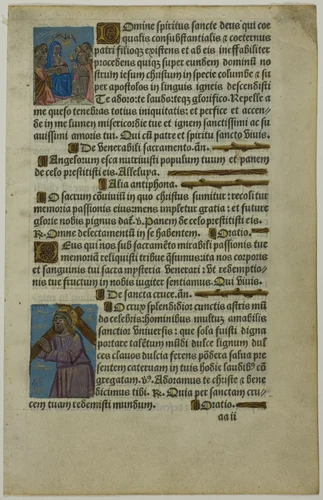 Omine spiritus sancte deus qui coe
qualis consubstantialis ⁊ coeternus
patri filioq; existens et ab eis ineffabiliter
procedens quiq; super eundem dominū no
strum iesum christum in specie columbe ⁊ su
per apostolos in linguis igneis descendisti
Te adoro: te laudo: teq; glorifico. Repelle a
me queso tenebras totius iniquitatis: et perfice et accen
de in me lumen misericordie tue et ignem sanctissimi ac su
auissimi amoris tui. Qui cū patre et spiritu sancto viuis.
De venerabili sacramento. añ.
Angelorum esca nutriuisti populum tuum et panem
de celo prestitisti eis. Alleluya.
Alia antiphona.
O sacrum cōuiuiū in quo christus sumitur recoli tur
memoria passionis eius: mens impletur gratia: et future
glorie nobis pignus dať. ℣. Panem de celo prestitisti eis.
℟. Omne delectamentū in se habentem. Oratio.
Deus qui nos sub sacramēto mirabili passionis tue
memoriā reliquisti tribue q̄sumus: ita nos corporis
et sanguinis tui sacra mysteria venerari: vt redemptio-
nis tue fructum in nobis iugiter sentiamus. Qui viuis.
De sancta cruce. añ.
O crux splendidior cunctis astris mū
do celebris: hominibus multuʒ amabilis
sanctior vniuersis: que sola fuisti digna
portare talētum mūdi dulce lignum dul
ces clauos dulcia ferens pōdera salua pre
sentem cateruam in tuis hodie laudibꝰ cō
gregatam. ℣. Adoramus te christe ⁊ bene
dicimus tibi. ℟. Quia per sanctam cru-
cem tuam redemisti mundum. Oratio.
aa ii